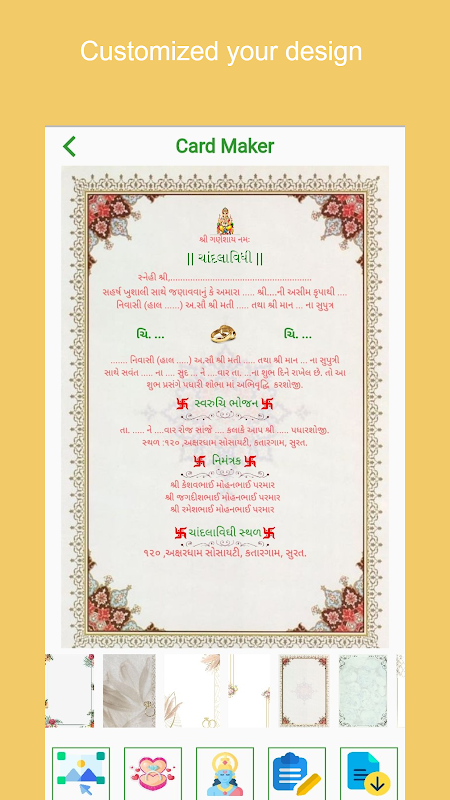 Customized your design
Card Maker
શ્રી ગણેશાય નમઃ
|| ચાંદલાવિધી ||
સ્નેહી શ્રી,....................................................
સહર્ષ ખુશાલી સાથે જણાવવાનું કે અમારા ..... શ્રી....ની અસીમ કૃપાથી ....
નિવાસી (હાલ .....) અ.સૌ શ્રી મતી ..... તથા શ્રી માન ... ના સુપુત્ર
ચિ. ... ચિ. ...
....... નિવાસી (હાલ .....) અ.સૌ શ્રી મતી ..... તથા શ્રી માન ... ના સુપુત્રી
સાથે સવંત ..... ના .... સુદ ... ને ....વાર તા. ...ના શુભ દિને રાખેલ છે. તો આ
શુભ પ્રસંગે પધારી શોભા માં અભિવૃદ્ધિ કરશોજી.
卐 સ્વરુચિ ભોજન 卐
તા. ..... ને ....વાર રોજ સાંજે .... કલાકે આપ શ્રી ..... પધારશોજી.
સ્થળ :૧૨૦ ,અક્ષરધામ સોસાયટી, કતારગામ, સુરત.
卐 નિમંત્રક 卐
શ્રી કેશવભાઈ મોહનભાઈ પરમાર
શ્રી જગદીશભાઈ મોહનભાઈ પરમાર
શ્રી રમેશભાઈ મોહનભાઈ પરમાર
卐ચાંદલાવિધી સ્થળ卐
૧૨૦ ,અક્ષરધામ સોસાયટી, કતારગામ, સુરત.